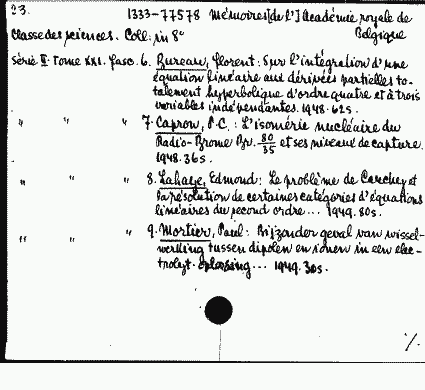 23. 1333-77578 Mémoires [de l'] Académie royale de
Classe des sciences. Coll: in 8° Belgique
Série II. Tome XXI. fasc. 6. Bureau, Florent: Sur l'intégration d'une
équation linéaire aux dérivées partielles to-
talement hyperbolique d'ordre quatre et à trois
variables indépendantes. 1948. 62 s.
" " " 7. Capron, P.C.: L'isomérie nucléaire du
Radio-Brome Br. 80/35 et ses niveaux de capture.
1948. 36 s.
" " " 8. Lahaye, Edmond: Le problème de Cauchy et
la résolution de certaines catégories d'équations
linéaires du second ordre... 1949. 80 s.
" " " 9. Mortier, Paul: Bijzonder geval van wissel-
werking tussen dipolen en ionen in een elec-
trolyt-oplossing... 1949. 30 s.
·/.